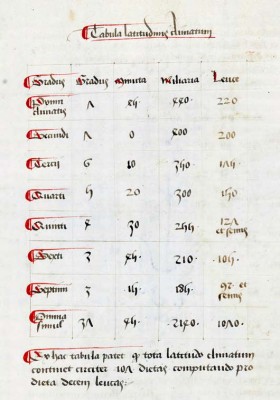 Tabula latitudinis climatum
Gradus Gradus Minuta Miliaria Leuce
Primi climatis 7 45 440 220
Secundi 7 0 400 200
Tercii 6 10 350 175
Quarti 5 20 300 150
Quinti 4 30 255 127 et semis
Sexti 3 45 210 105
Septimi 3 15 185 92 et semis
Omnia simul 37 45 2140 1070
Ex hac tabula patet q tota latitudo climatum
continet circiter 107 dietas computando pro
dieta decem leucas: